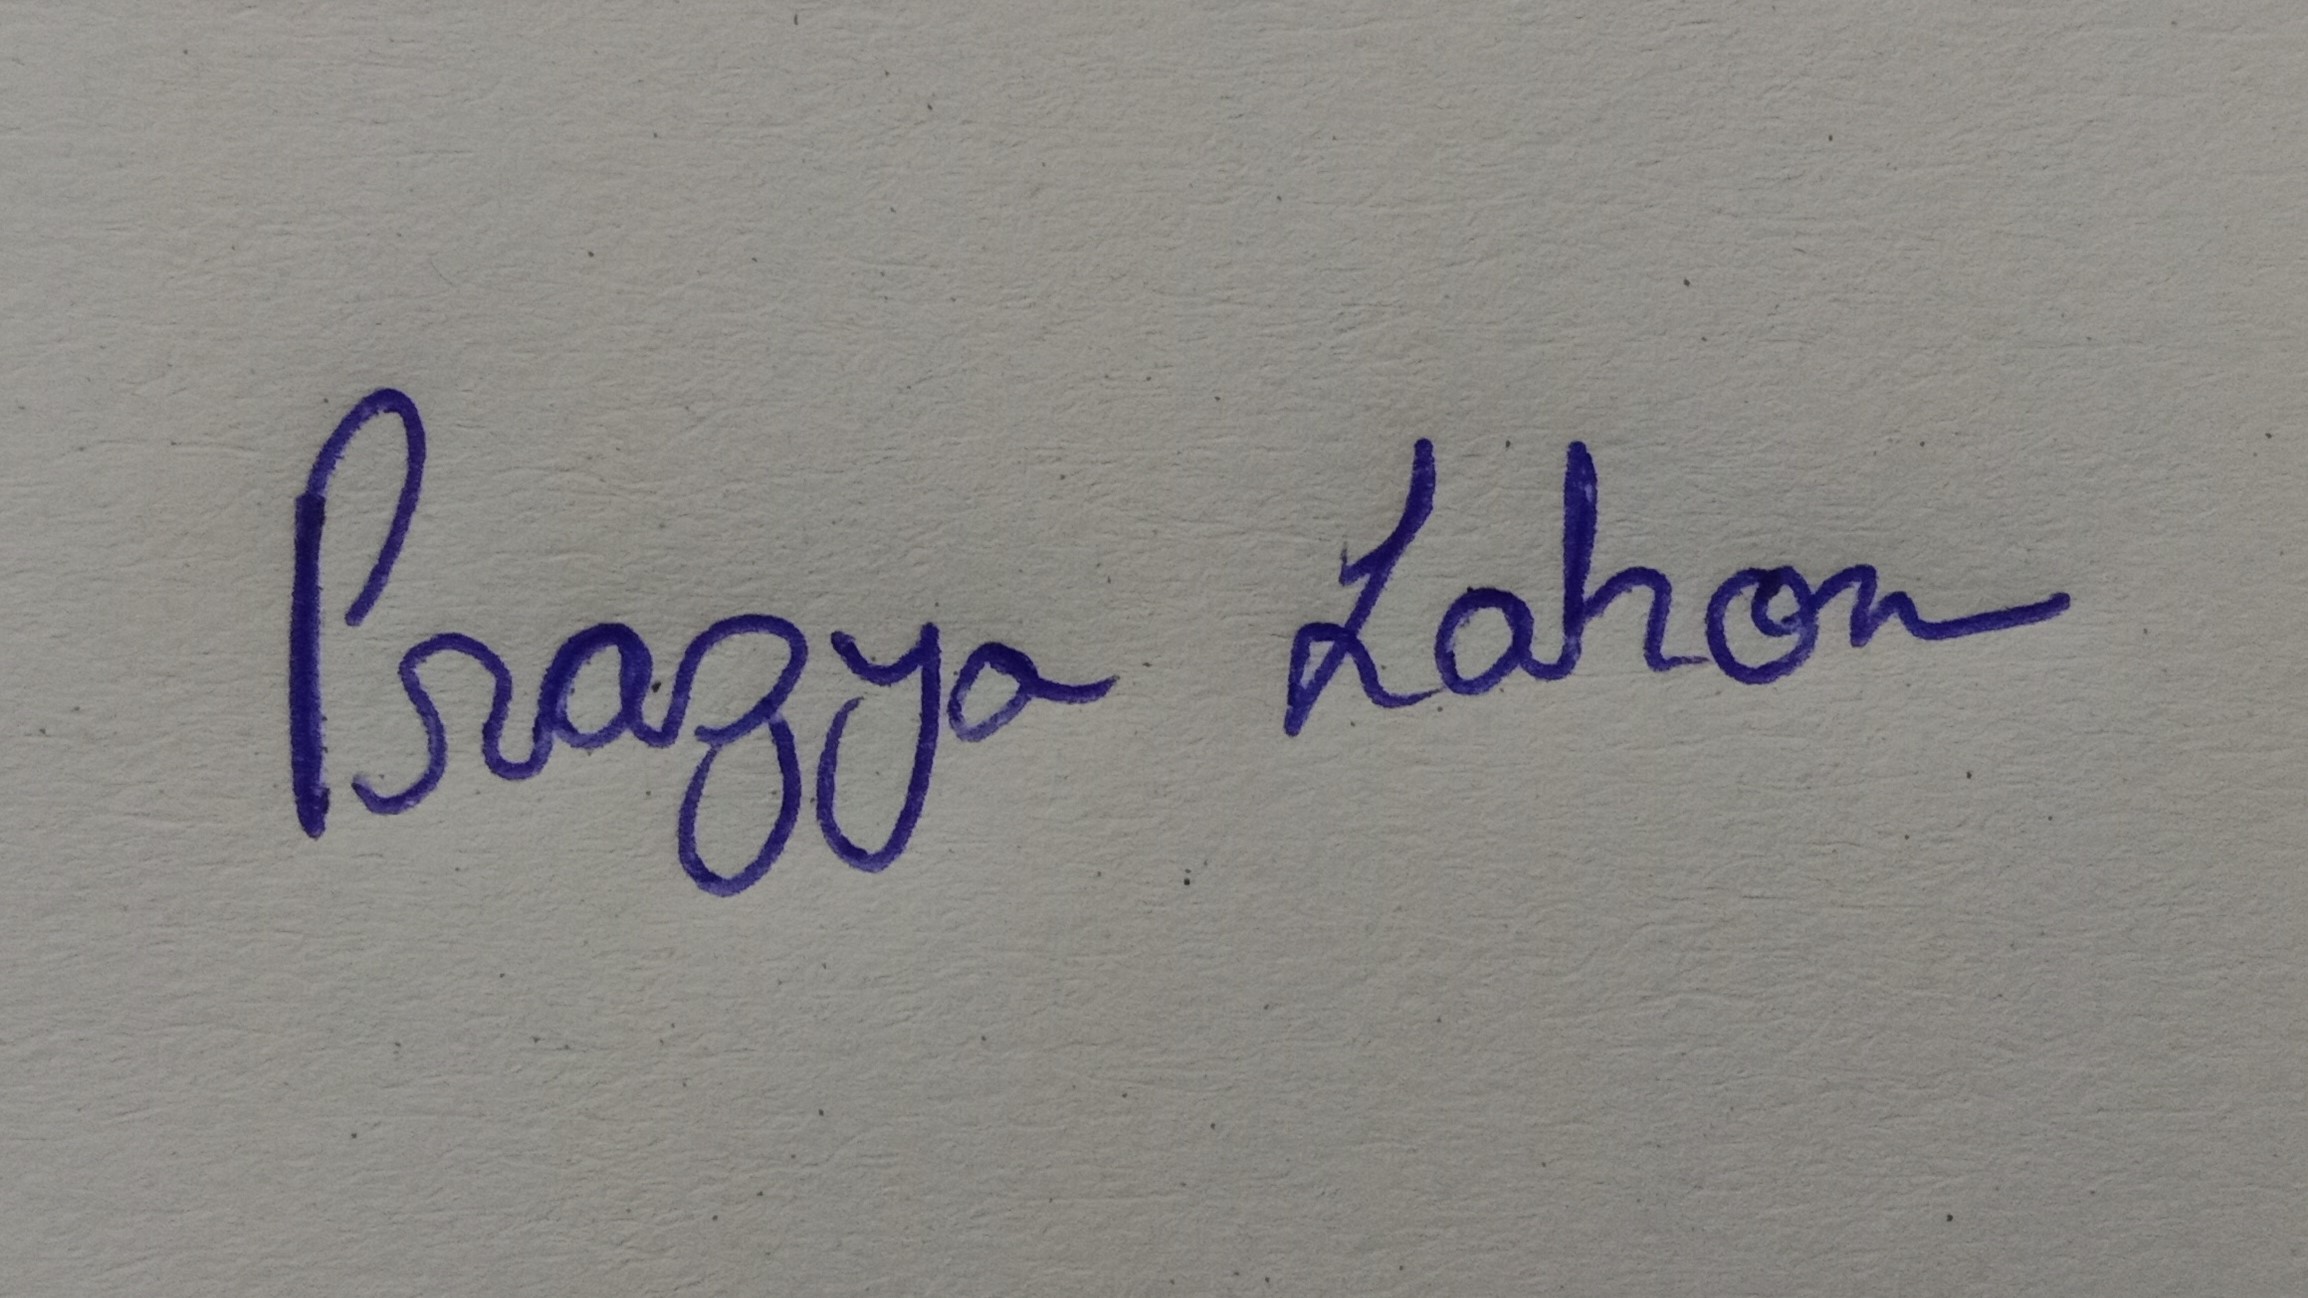 Pragya Lahon